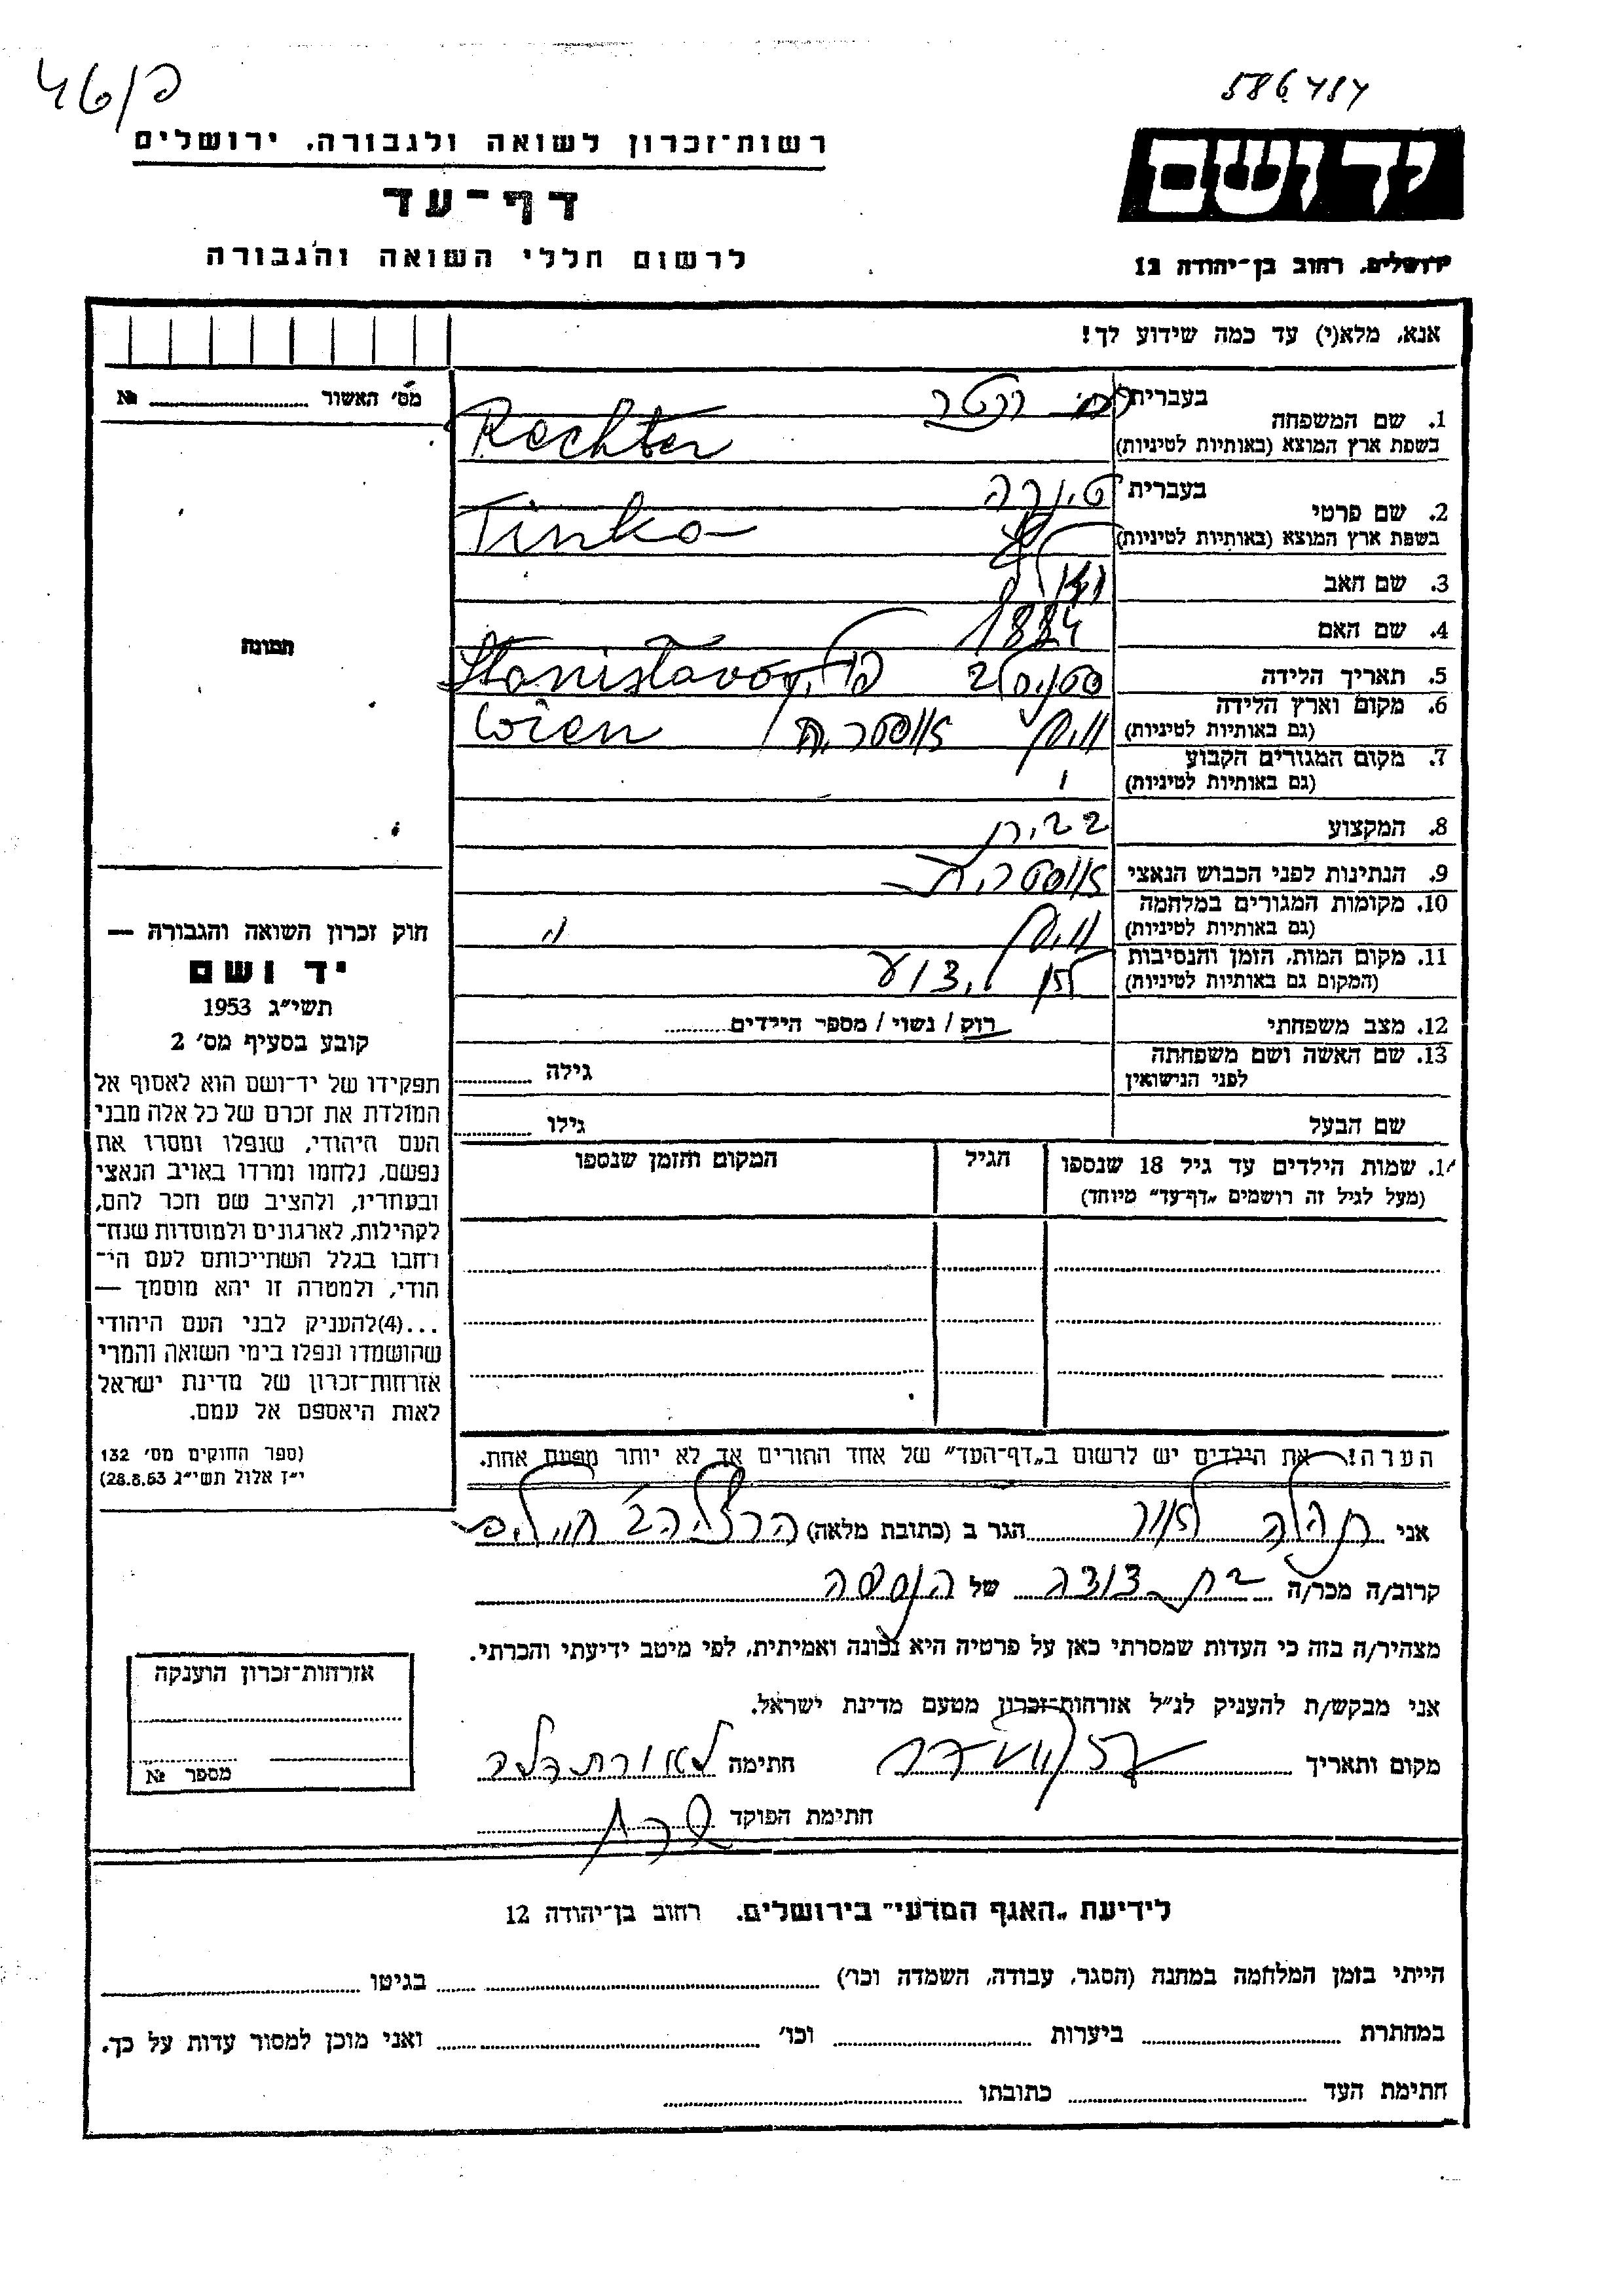 46/פ
586487
רשות־זכרון לשואה ולגבורה, ירושלים
דף־עד
לרשום חללי השואה והגבורה
יד ושם
ירושלים, רחוב בן־יהודה 12
אנא, מלא(י) עד כמה שידוע לך!
מס׳ האשור №
תמונה
1. שם המשפחה
בעברית רכטר
בשפת ארץ המוצא (באותיות לטיניות) Rechter
2. שם פרטי
בעברית טינקה
בשפת ארץ המוצא (באותיות לטיניות) Tinka
3. שם האב
4. שם האם
5. תאריך הלידה 1884
6. מקום וארץ הלידה
(גם באותיות לטיניות) Stanislavov
7. מקום המגורים הקבוע
(גם באותיות לטיניות) וינה אוסטריה Wien
8. המקצוע
9. הנתינות לפני הכבוש הנאצי אוסטרית
10. מקומות המגורים במלחמה
(גם באותיות לטיניות) וינה
11. מקום המות, הזמן והנסיבות
(המקום גם באותיות לטיניות) לא ידוע
12. מצב משפחתי רוק / נשוי / מספר הילדים
13. שם האשה ושם משפחתה
לפני הנישואין גילה
שם הבעל גילו
14. שמות הילדים עד גיל 18 שנספו
(מעל לגיל זה רושמים „דף־עד״ מיוחד)
הגיל
המקום והזמן שנספו
הערה: את הילדים יש לרשום ב„דף־העד״ של אחד ההורים אך לא יותר מפעם אחת.
חוק זכרון השואה והגבורה —
יד ושם
תשי״ג 1953
קובע בסעיף מס׳ 2
תפקידו של יד־ושם הוא לאסוף אל
המולדת את זכרם של כל אלה מבני
העם היהודי, שנפלו ומסרו את
נפשם, נלחמו ומרדו באויב הנאצי
ובעוזריו, ולהציב שם וזכר להם,
לקהילות, לארגונים ולמוסדות שנח־
רבו בגלל השתייכותם לעם הי־
הודי, ולמטרה זו יהא מוסמך —
...(4)להעניק לבני העם היהודי
שהושמדו ונפלו בימי השואה והמרי
אזרחות־זכרון של מדינת ישראל
לאות היאספם אל עמם.
(ספר החוקים מס׳ 132
י״ז אלול תשי״ג 28.8.53)
אני לאור הגר ב (כתובת מלאה) הרצליה ב׳
קרוב/ה מכר/ה בת דודה של הנספה
מצהיר/ה בזה כי העדות שמסרתי כאן על פרטיה היא נכונה ואמיתית, לפי מיטב ידיעתי והכרתי.
אני מבקש/ת להעניק לנ״ל אזרחות־זכרון מטעם מדינת ישראל.
מקום ותאריך חתימה
חתימת הפוקד
אזרחות־זכרון הוענקה
מספר №
לידיעת „האגף המדעי״ בירושלים, רחוב בן־יהודה 12
הייתי בזמן המלחמה במחנה (הסגר, עבודה, השמדה וכו׳) בגיטו
במחתרת ביערות וכו׳ ואני מוכן למסור עדות על כך.
חתימת העד כתובתו